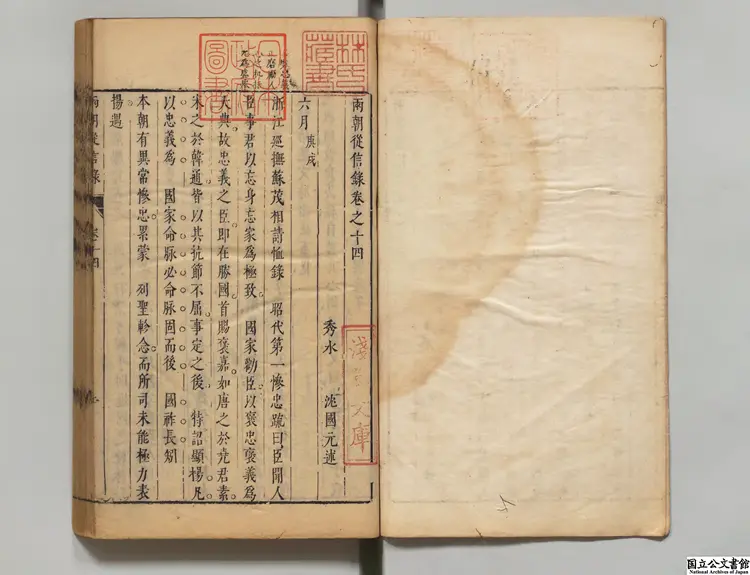 兩朝從信錄卷之十四
秀水 沈國元述
六月 庚戌
浙江巡撫蘇茂相請恤錄 昭代第一慘忠疏曰臣聞人
臣事君以忘身忘家爲極致 國家勸臣以褒忠褒義爲
大典故忠義之臣即在勝國首賜褒嘉如唐之於堯君素
宋之於韓通皆以其抗節不屈事定之後 特詔顯揚凡
以忠義爲 國家命脉必命脉固而後 國祚長矧
本朝有異常慘忠累蒙 列聖軫念而所司未能極力表
揚遇
兩朝從信錄 卷十四
林氏藏書
日本政府圖書
淺草文庫
国立公文書館
National Archives of Japan